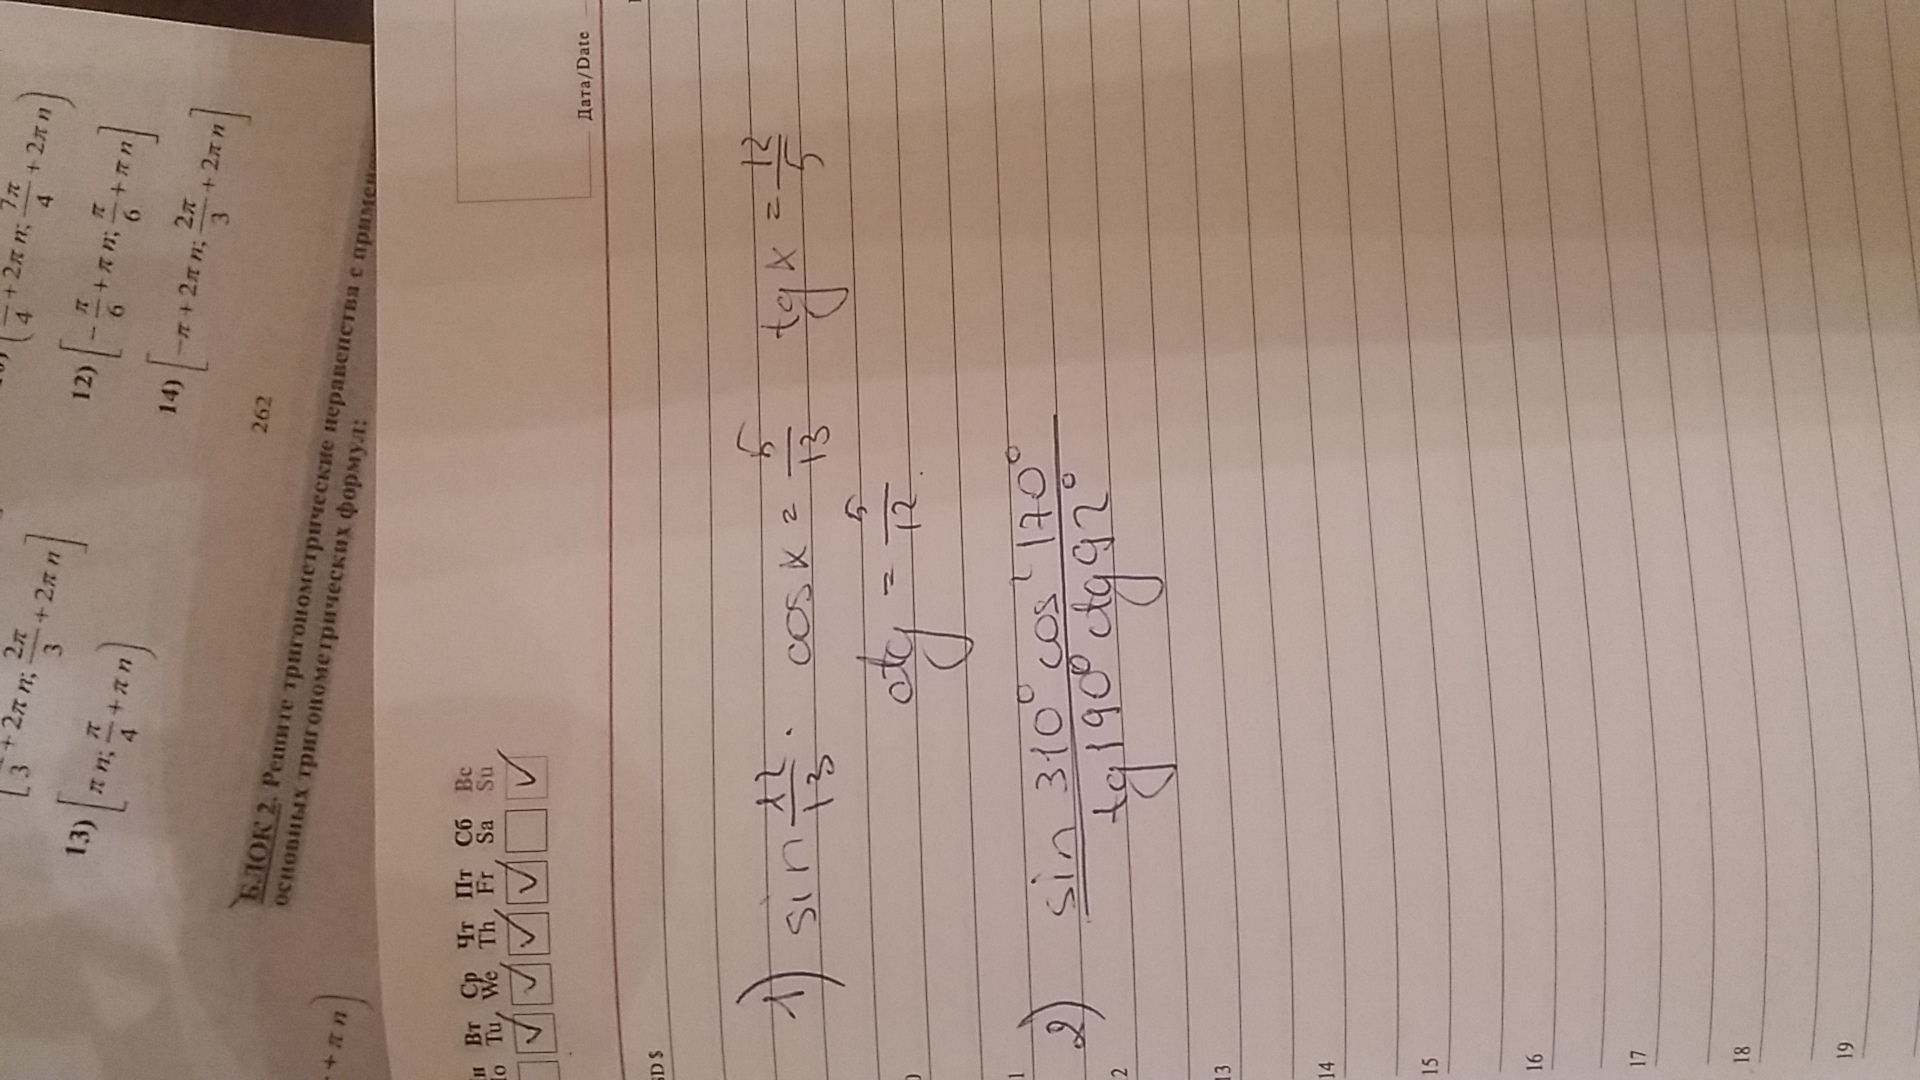 4 + 2πn; 7π/4 + 2πn)
3 + 2πn; 2π/3 + 2πn]
12) [-π/6 + πn; π/6 + πn]
13) [πn; π/4 + πn)
14) [-π + 2πn; 2π/3 + 2πn]
+ πn)
262
БЛОК 2. Решите тригонометрические неравенства с
основных тригонометрических формул:
Вт Ср Чт Пт Сб Вс
Tu We Th Fr Sa Su
Дата/Date
1) sin 12/13 . cos x = 5/13 tg x = 12/5
ctg = 5/12.
2) sin 310° cos² 170° / tg 190° ctg 92°
1
2
13
14
15
16
17
18
19